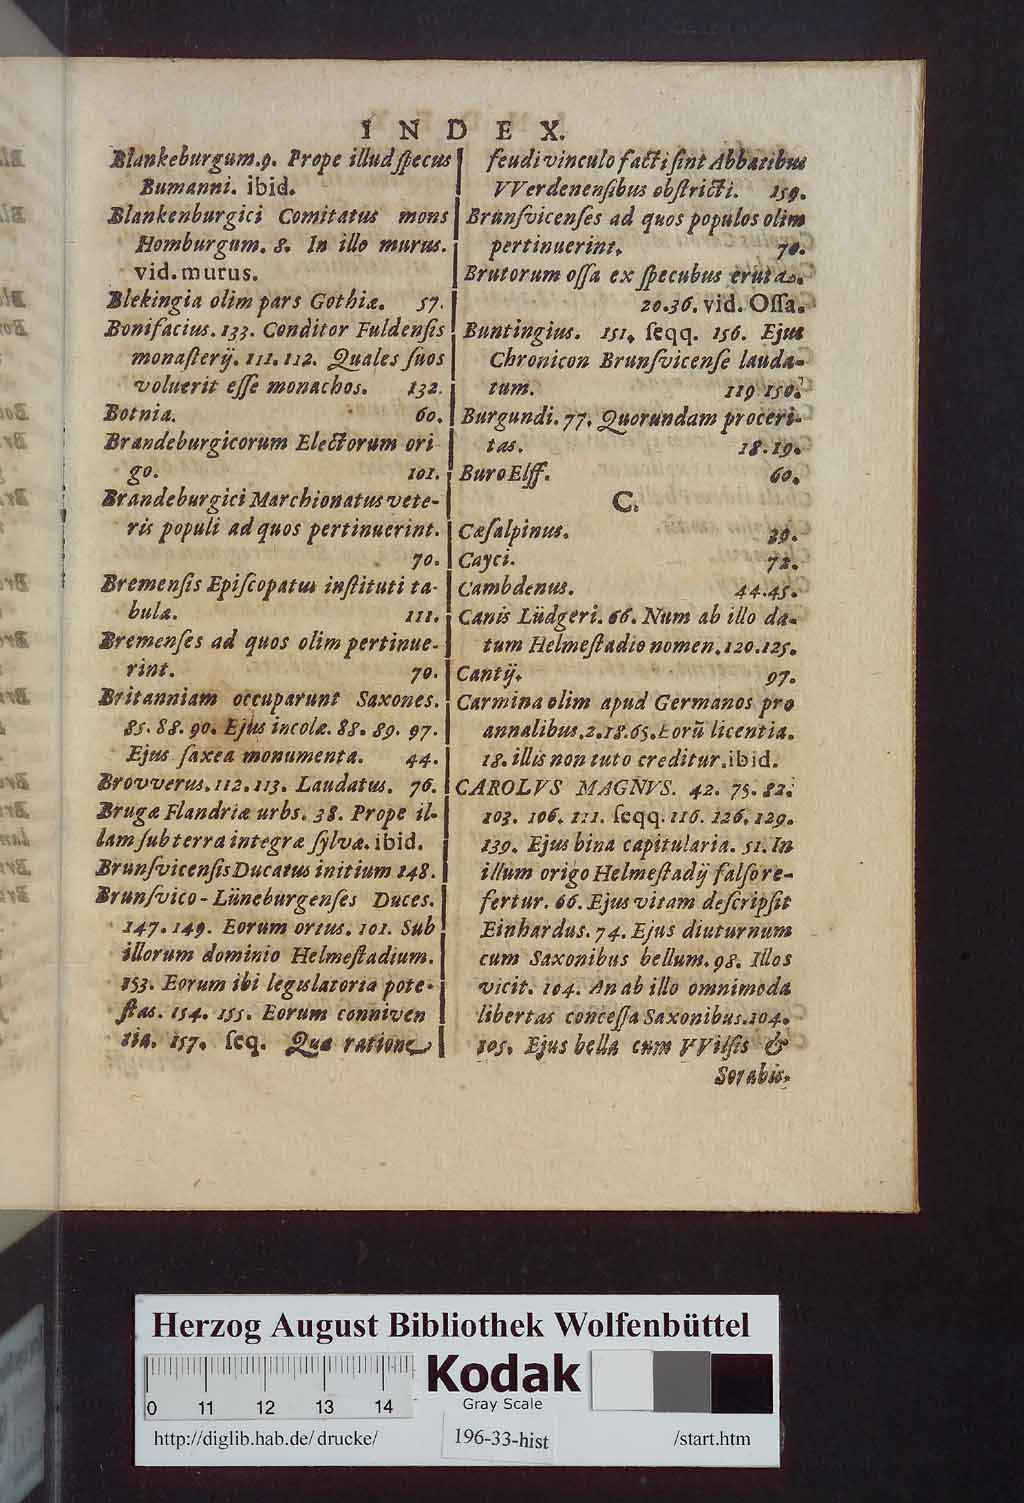 INDEX.
Blankeburgum. 9. Prope illud ſpecus
Bumanni. ibid.
Blankenburgici Comitatus mons
Homburgum. 8. In illo murus.
vid. murus.
Blekingia olim pars Gothiæ. 57.
Bonifacius. 133. Conditor Fuldenſis
monaſterij. 111. 112. Quales ſuos
voluerit eſſe monachos. 132.
Botnia. 60.
Brandeburgicorum Electorum ori
go. 101.
Brandeburgici Marchionatus vete-
ris populi ad quos pertinuerint.
70.
Bremenſis Epiſcopatus inſtituti ta-
bula. 111.
Bremenſes ad quos olim pertinue-
rint. 70.
Britanniam occuparunt Saxones.
85. 88. 90. Ejus incolæ. 88. 89. 97.
Ejus ſaxea monumenta. 44.
Brovverus. 112. 113. Laudatus. 76.
Brugæ Flandriæ urbs. 38. Prope il-
lam ſub terra integræ ſylvæ. ibid.
Brunſvicenſis Ducatus initium 148.
Brunſvico-Lüneburgenſes Duces.
147. 149. Eorum ortus. 101. Sub
illorum dominio Helmeſtadium.
153. Eorum ibi legislatoria pote-
ſtas. 154. 155. Eorum conniven
tia. 157. ſeq. Qua ratione
feudi vinculo facti ſint Abbatibus
VVerdenenſibus obſtricti. 159.
Brunſvicenſes ad quos populos olim
pertinuerint. 70.
Brutorum oſſa ex ſpecubus eruta.
20. 36. vid. Oſſa.
Buntingius. 151. ſeqq. 156. Ejus
Chronicon Brunſvicenſe lauda-
tum. 119 150.
Burgundi. 77. Quorundam proceri-
tas. 18. 19.
Buro Elff. 60.
C.
Cæſalpinus. 39.
Cayci. 72.
Cambdenus. 44. 45.
Canis Lüdgeri. 66. Num ab illo da-
tum Helmeſtadio nomen. 120. 125.
Cantij. 97.
Carmina olim apud Germanos pro
annalibus. 2. 18. 65. Eorũ licentia.
18. illis non tuto creditur. ibid.
CAROLVS MAGNVS. 42. 75. 82.
103. 106. 111. ſeqq. 116. 126. 129.
139. Ejus bina capitularia. 51. In
illum origo Helmeſtadij falſo re-
fertur. 66. Ejus vitam deſcripſit
Einhardus. 74. Ejus diuturnum
cum Saxonibus bellum. 98. Illos
vicit. 104. An ab illo omnimoda
libertas conceſſa Saxonibus. 104.
105. Ejus bella cum VVilſis &
Sorabis.
Herzog August Bibliothek Wolfenbüttel
0 11 12 13 14
Kodak
Gray Scale
http://diglib.hab.de/drucke/ 196-33-hist /start.htm